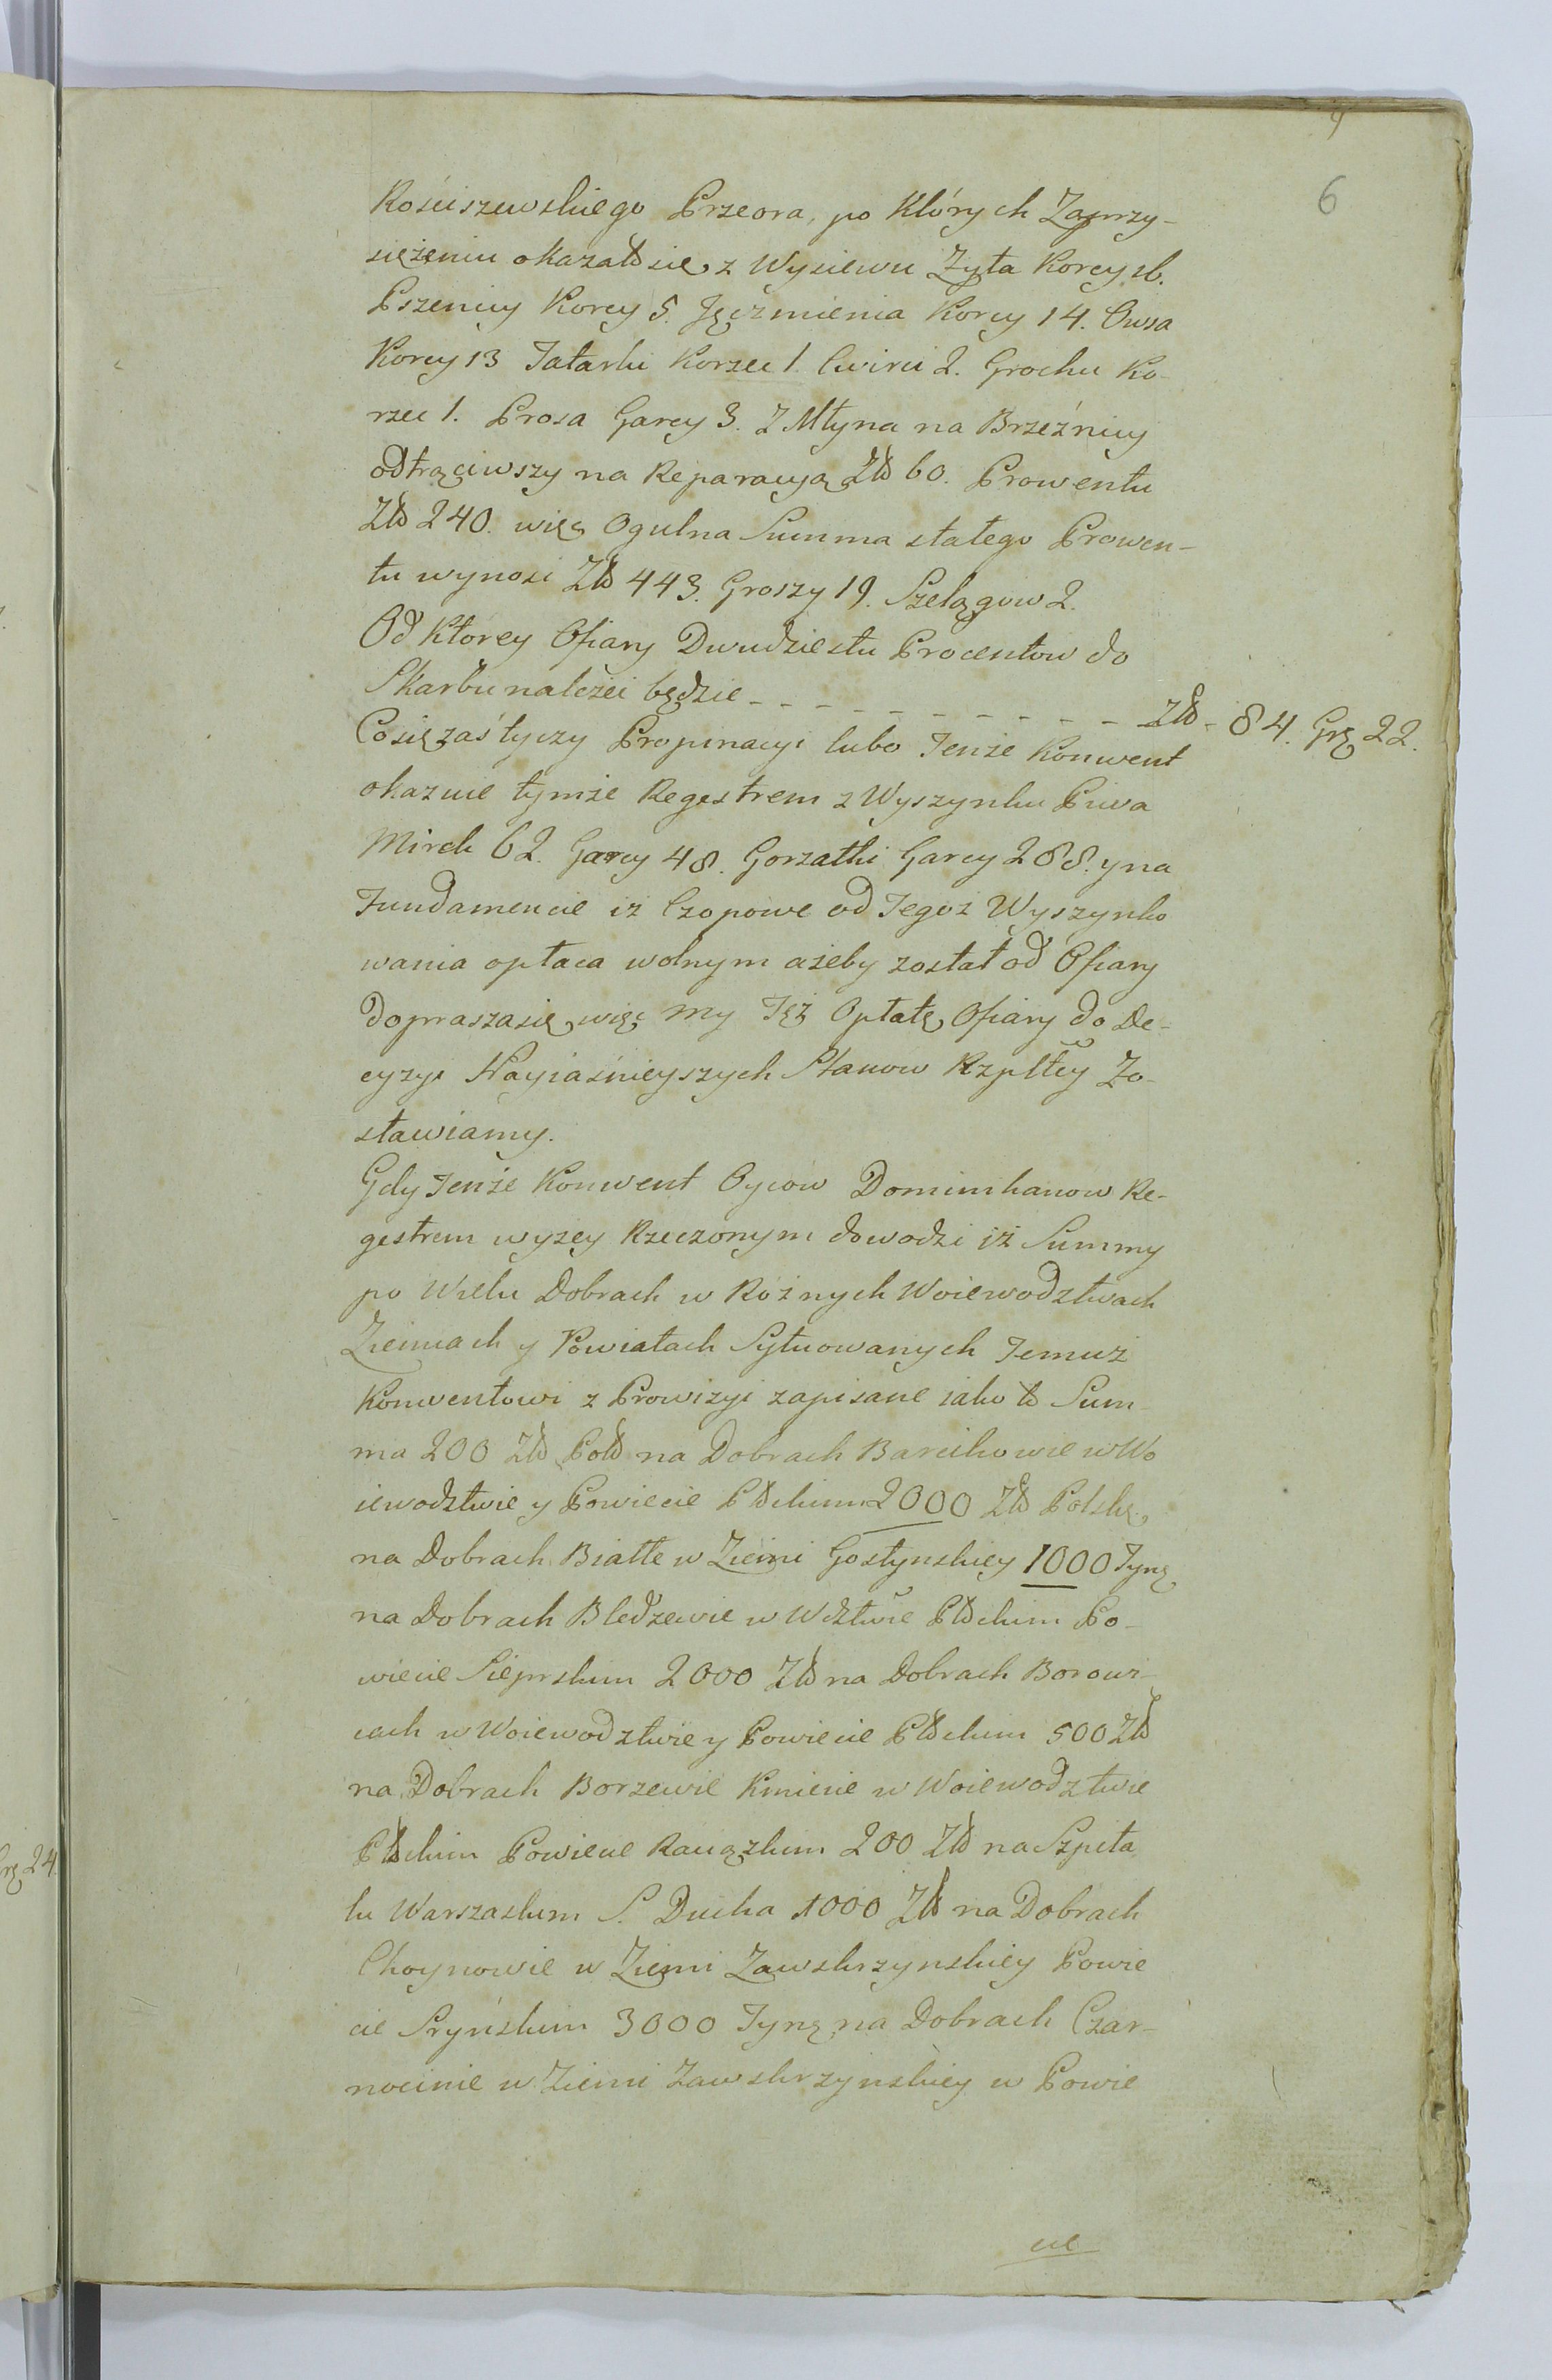 9
6
Kościszewskiego Przeora, po Których Zaprzy-
siężeniu okazałosię z Wysiewu Zyta Korcy 16.
Pszenicy Korcy 5. Jęczmienia Korcy 14. Owsa
Korcy 13 Tatarki Korzec 1. Cwirci 2. Grochu Ko-
rzec 1. Prosa Garcy 3. Z Młyna na Brzeźnicy
odtrąciwszy na Reparacyą Zło 60. Prowentu
Zło 240. więc Ogulna Summa stałego Prowen-
tu wynosi Zło 443. Groszy 19. Szelągow 2.
Od Ktorey Ofiary Dwudziestu Procentow do
Skarbu należeć będzie - - - - - - - - - - Zło - 84. Grę 22.
Cosię zaś tyczy Propinacyi lubo Tenże Konwent
okazuie tymże Regestrem z Wyszynku Piwa
Mirek 62. Garcy 48. Gorzałki Garcy 288. y na
Fundamencie iż Czopowe od Tegoż Wyszynko
wania opłaca wolnym ażeby został od Ofiary
doprasza się, więc my Też Opłatę Ofiary do De-
cyzyi Nayiaśnieyszych Stanow Rzpltey Zo-
stawiamy.
Gdy Tenże Konwent Oycow Dominikanow Re-
gestrem wyzey Rzeczonym dowodzi iż Summy
po Wielu Dobrach w Rożnych Woiewodztwach
Ziemiach y Powiatach Sytuowanych Temuż
Konwentowi z Prowizyi zapisane iako to Sum-
ma 200 Zło Pol na Dobrach Barcikowie w Wo
iewodztwie y Powiecie Płockim 2000 Zło Polskę
na Dobrach Białłe w Ziemi Gostynskiey 1000 Tynę
na Dobrach Bledzewie w Wdztwie Płockim Po-
wiecie Sieprskim 2000 Zło na Dobrach Borowi-
cach w Woiewodztwie y Powiecie Płockim 500 Zło
na Dobrach Borzewie Kmiecie w Woiewodztwie
Płockim Powiecie Raciązkim 200 Zło na Szpita
lu Warszaskim S. Ducha 1000 Zło na Dobrach
Choynowie w Ziemi Zawskrzynskiey Powie
cie Sryńskim 3000 Tynę na Dobrach Czar-
nocinie w Ziemi Zawskrzyńskiey w Powie
cie
Grę 24.